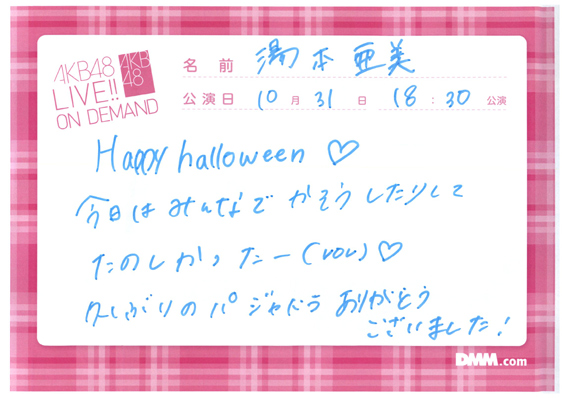 AKB48
LIVE!!
ON DEMAND
AKB
48
名前 湯本亜美
公演日 10月31日 18:30公演
Happy halloween ♡
今日はみんなで かそうしたりして
たのしかったー(vov)♡
久しぶりのパジャドラ ありがとう
ございました!
DMM.com